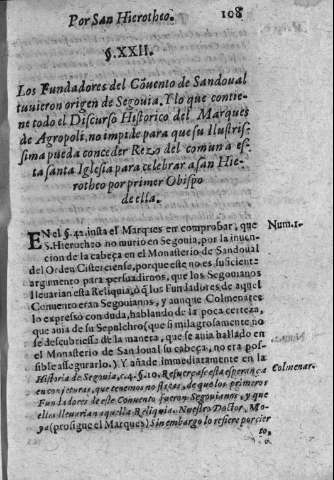 Por San Hierotheo. 108
§. XXII.
Los Fundadores del Cõuento de Sandoual
tuuieron origen de Segouia. Y lo que contie-
ne todo el Discurso Historico del Marques
de Agropoli, no impide para que su Ilustris-
sima pueda conceder Rezo del comun a es-
ta santa Iglesia para celebrar a san Hie-
rotheo por primer Obispo
de ella.
EN el §. 42. insta el Marques en comprobar, que Num. 1.
S. Hierotheo no murio en Segouia, por la inuen-
cion de la cabeça en el Monasterio de Sandoual
del Orden Cisterciense, porque este no es suficiente
argumento para persuadirnos, que los Segouianos
lleuarian esta Reliquia, ò q̃ los Fundadores de aquel
Conuento eran Segouianos, y aunque Colmenares
lo expressò con duda, hablando de la poca certeza,
que auia de su Sepulchro, (que si milagrosamente no
se descubriesse de la manera, que se auia hallado en
el Monasterio de Sandoual su cabeça, no era pos-
sible assegurarlo.) Y añade immediatamente en la
Historia de Segouia, c. 4. §. 10. Refuerçase esta esperança Colmenar.
en conjeturas, que tenemos no flacas, de que los primeros
Fundadores de este Conuento fueron Segouianos, y que
ellos lleuarian aquella Reliquia. Nuestro Doctor, Mo-
ya (prosigue el Marques) Sin embargo lo refiere por cier
to,